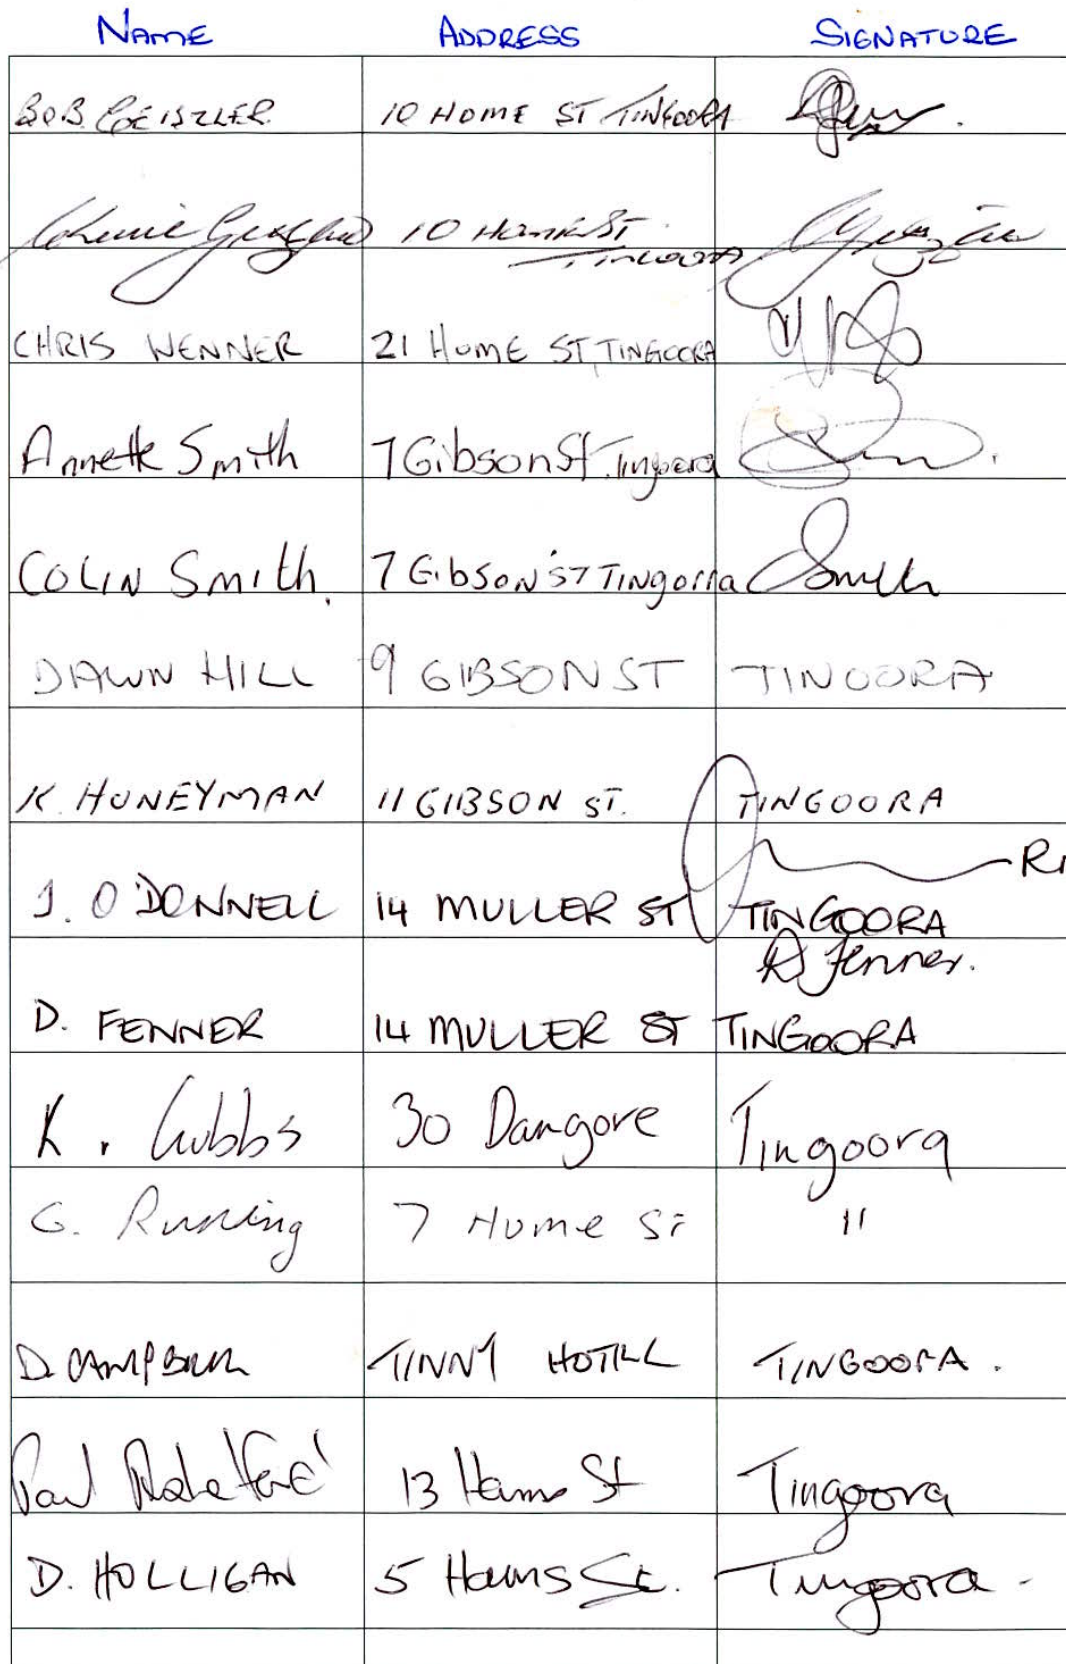 NAME ADDRESS SIGNATURE
BOB 10 HOME ST TINGOORA
10 HOME ST
TINGOORA
CHRIS WENNER 21 HOME ST, TINGOORA
Annette Smith 7 Gibson St Tingoora
COLIN Smith. 7 GibSON ST TINgorra Smith
DAWN HILL 9 GIBSON ST TINOORA
K. HONEYMAN 11 GIBSON ST. TINGOORA
J. O'DONNELL 14 MULLER ST TINGOORA
D Fenner.
D. FENNER 14 MULLER ST TINGOORA
K. Cubbs 30 Dangore Tingoora
G. Running 7 Home St "
D. CAMPBELL TINNY HOTELL TINGOORA.
Paul 13 St Tingoora
D. HOLLIGAN 5 St. Tingoora.